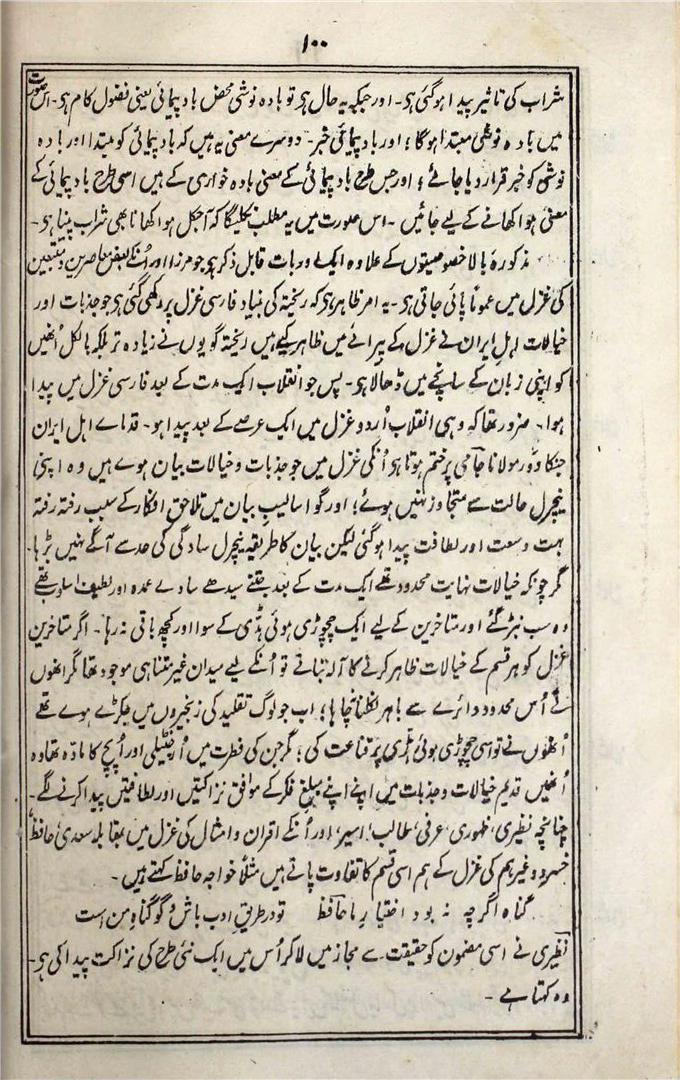 ۱۰۰
شراب کی تاثیر پیدا ہوگئی ہی۔ اور جبکہ یہ حال ہی تو بادہ نوشی محض باد پیمائی یعنی فضول کام ہی۔ اس صورت
میں بادہ نوشی مبتدا ہوگا؛ اور باد پیمائی خبر۔ دوسرے معنی یہ ہیں کہ باد پیمائی کو مبتدا اور بادہ
نوشی کو خبر قرار دیا جائے؛ اور جس طرح باد پیمائی کے معنی بادہ خواری کے ہیں اسی طرح باد پیمائی کے
معنی ہوا کھانے کے لیے جائیں۔ اس صورت میں یہ مطلب نکلیگا کہ آجکل ہوا کھانا بھی شراب پینا ہی۔
مذکورۂ بالا خصوصیتوں کے علاوہ ایک اور بات قابل ذکر ہی جو مرزا اور اُنکے بعض معاصرین و متبعین
کی غزل میں عموماً پائی جاتی ہی۔ یہ امر ظاہر ہی کہ ریختہ کی بنیاد فارسی غزل پر رکھی گئی ہی جو جذبات اور
خیالات اہلِ ایران نے غزل کے پیرائے میں ظاہر کیے ہیں ریختہ گویوں نے زیادہ تر بلکہ بالکل اُنھیں
کو اپنی زبان کے سانچے میں ڈھالا ہی۔ پس جو انقلاب ایک مدت کے بعد فارسی غزل میں پیدا
ہوا۔ ضرور تھا کہ وہی انقلاب اُردو غزل میں ایک عرصے کے بعد پیدا ہو۔ قدماے اہل ایران
جنکا دَور مولانا جاؔمی پر ختم ہوتا ہی اُنکی غزل میں جو جذبات و خیالات بیان ہوے ہیں وہ اپنی
نیچرل حالت سے متجاوز نہیں ہوئے؛ اور گو اسالیبِ بیان میں تلاحقِ افکار کے سبب رفتہ رفتہ
بہت وسعت اور لطافت پیدا ہوگئی لیکن بیان کا طریقہ نیچرل سادگی کی حد سے آگے نہیں بڑہا۔
مگر چونکہ خیالات نہایت محدود تھے ایک مدت کے بعد جتنے سیدھے سادے عمدہ اور لطیف اسلوب تھے
وہ سب نبڑ گئے اور متاخرین کے لیے ایک چچوڑی ہوئی ہڈی کے سوا اور کچھ باقی نہ رہا۔ اگر متاخرین
غزل کو ہر قسم کے خیالات ظاہر کرنے کا آلہ بناتے تو اُنکے لیے میدان غیر متناہی موجود تھا مگر انھوں
نے اُس محدود دائرے سے باہر نکلنا نچاہا؛ اب جو لوگ تقلید کی زنجیروں میں جکڑے ہوے تھے
اُنھوں نے تو اسی چچوڑی ہوئی ہڈی پر قناعت کی؛ مگر جن کی فطرت میں اُرجنیلٹی اور اُپج کا مادّہ تھا وہ
اُنھیں قدیم خیالات و جذبات میں اپنے اپنے مبلغِ فکر کے موافق نزاکتیں اور لطافتیں پیدا کرنے لگے۔
چنانچہ نظیری، ظہوری، عرفی، طالب، اسیر، اور اُنکے اقران و امثال کی غزل میں بمقابلہ سعدی، حافظ،
خسرو وغیرہم کی غزل کے ہم اسی قسم کا تفاوت پاتے ہیں مثلاً خواجہ حافظ کہتے ہیں۔
گناہ اگرچہ نہ بود اختیارِ ما حاؔفظ تو در طریقِ ادب باش و گو گناہِ من است
نظیری نے اسی مضمون کو حقیقت سے مجاز میں لاکر اُس میں ایک نئی طرح کی نزاکت پیدا کی ہی۔
وہ کہتا ہے۔